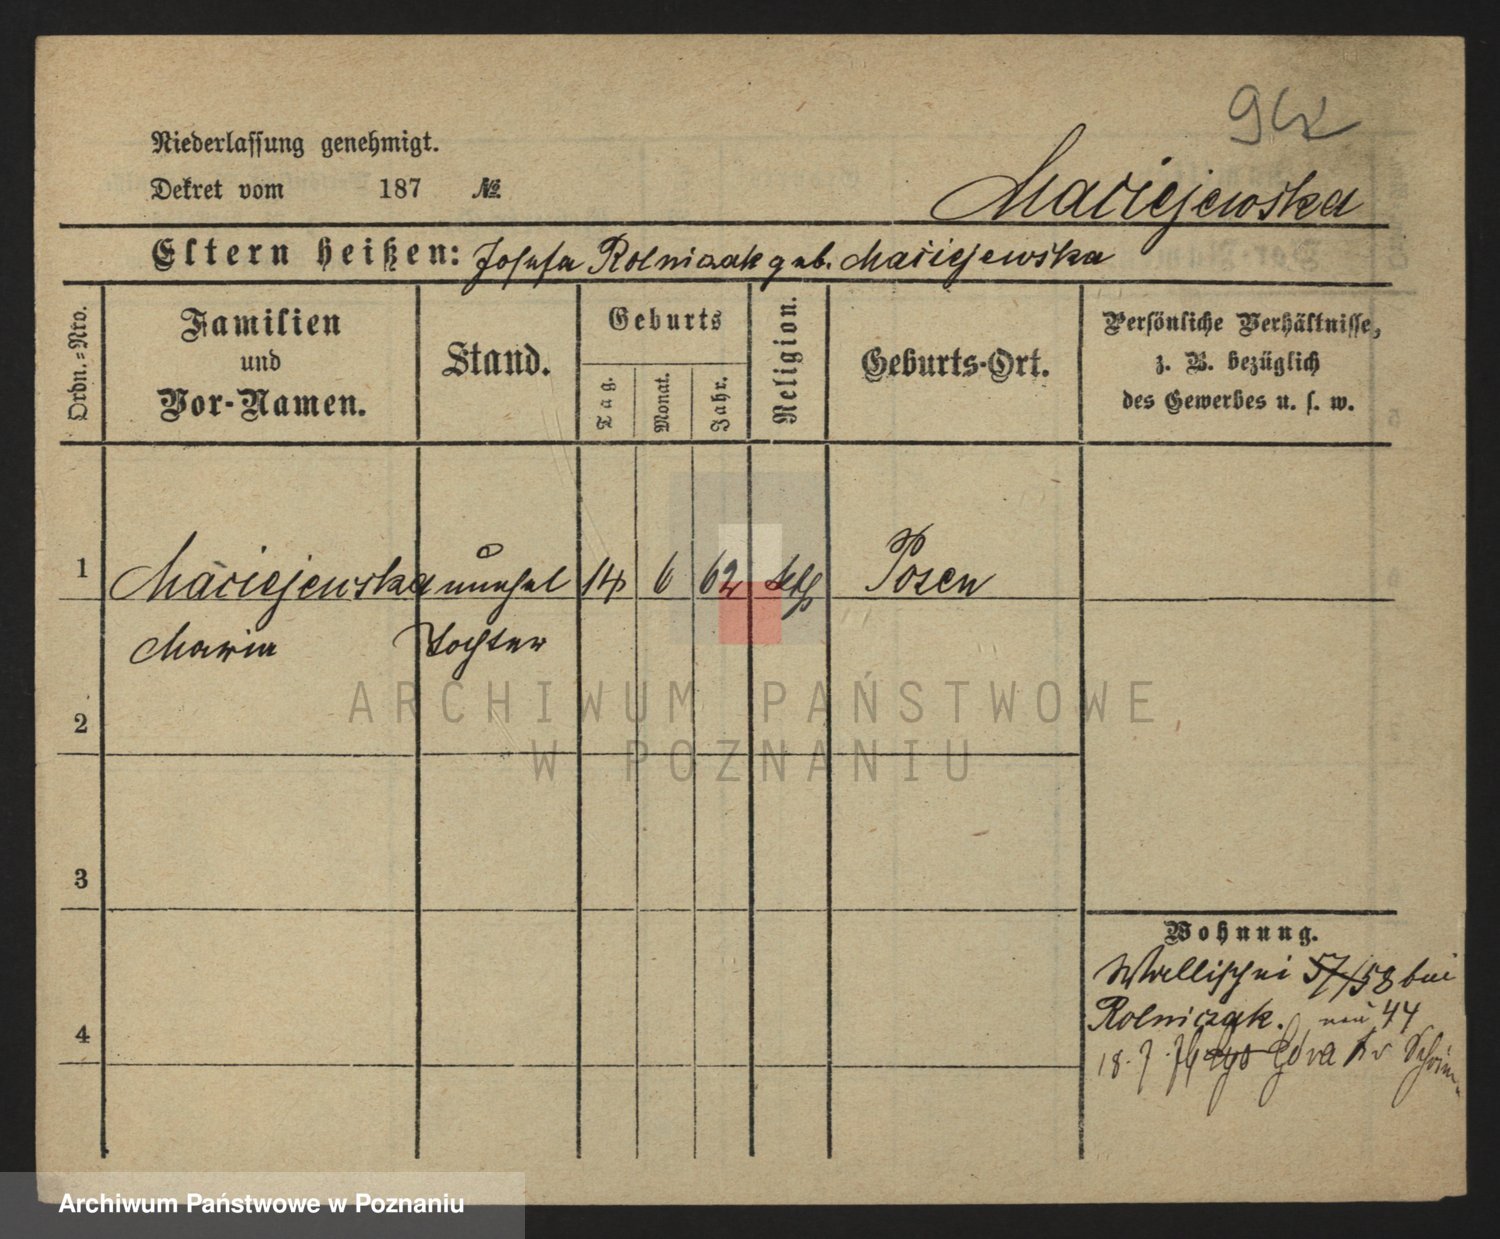 Niederlassung genehmigt.
Dekret vom 187 №
Maciejewska
Eltern heißen: Josefa Rolniczak geb. Maciejewska
Ordn.=Nro.
Familien
und
Vor-Namen.
Stand.
Geburts
Tag.
Monat.
Jahr.
Religion.
Geburts-Ort.
Persönliche Verhältnisse,
z. B. bezüglich
des Gewerbes u. s. w.
1 Maciejewska unehel 14 6 62 kth Posen
Maria Tochter
2
3
4
Wohnung.
Wallischei 57/58 bei
Rolniczak. neu 44
18.7.76 Góra Kr Schrim
ARCHIWUM PAŃSTWOWE
W POZNANIU
Archiwum Państwowe w Poznaniu